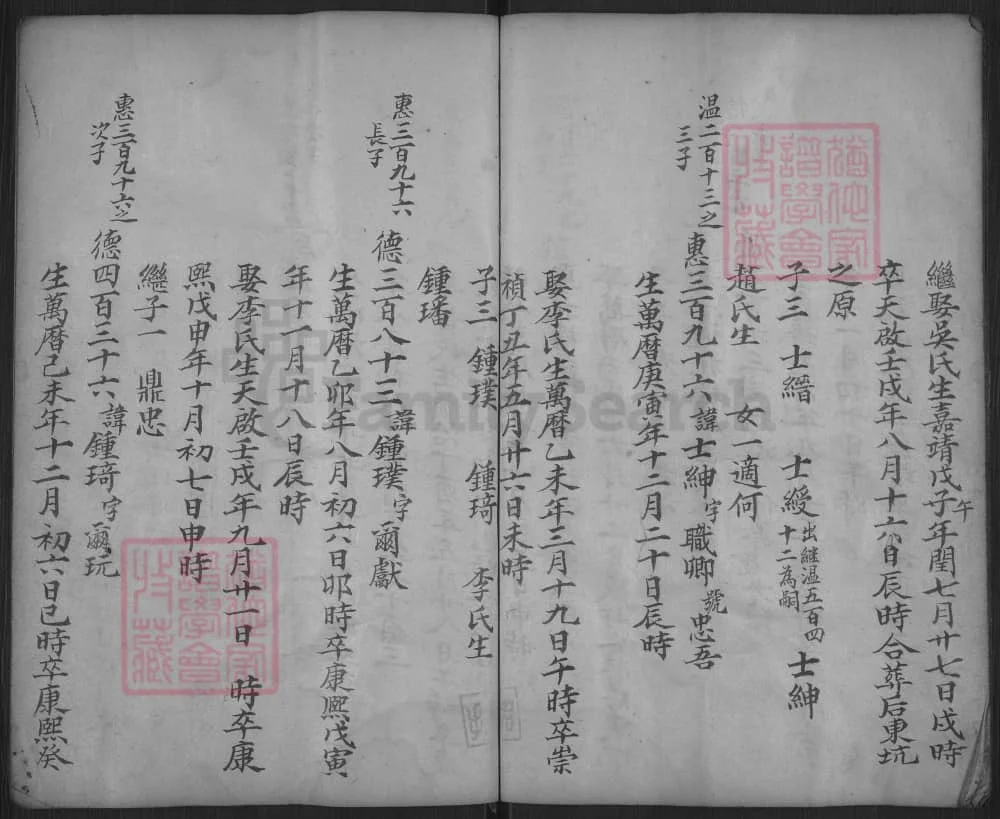 繼娶吳氏生嘉靖戊子午年閏七月廿七日戌時
卒天啟壬戌年八月十六日辰時合葬后東坑
之原
子三 士縉 士綬出繼溫五百四十二為嗣 士紳
趙氏生 女一適何
溫二百十三之三子
惠三百九十六諱士紳字職卿號忠吾
生萬曆庚寅年十二月二十日辰時
娶李氏生萬曆乙未年三月十九日午時卒崇
禎丁丑年五月廿六日未時
子三 鍾璞 鍾琦 李氏生
鍾璠
惠三百九十六長子
德三百八十三諱鍾璞字爾獻
生萬曆乙卯年八月初六日卯時卒康熙戊寅
年十一月十八日辰時
娶李氏生天啟壬戌年九月廿一日 時卒康
熙戊申年十月初七日申時
繼子一 鼎忠
惠三百九十六之次子
德四百三十六諱鍾琦字爾玩
生萬曆己未年十二月初六日巳時卒康熙癸
FamilySearch